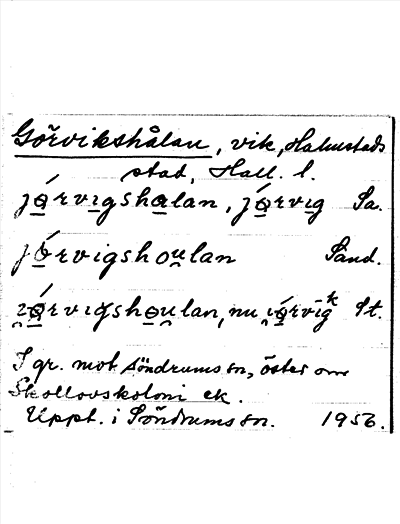 Görvikshålan, vik, Halmstads
stad, Hall. l.
jǿrvigshålan, jǿrvig Sa.
jǿrvigshou̯lan Sand.
i̯ǿrvigshou̯lan, nu i̯ǿrvīgᵏ St.
I gr. mot Söndrums sn, öster om
ek.
Uppt. i Söndrums sn. 1956.